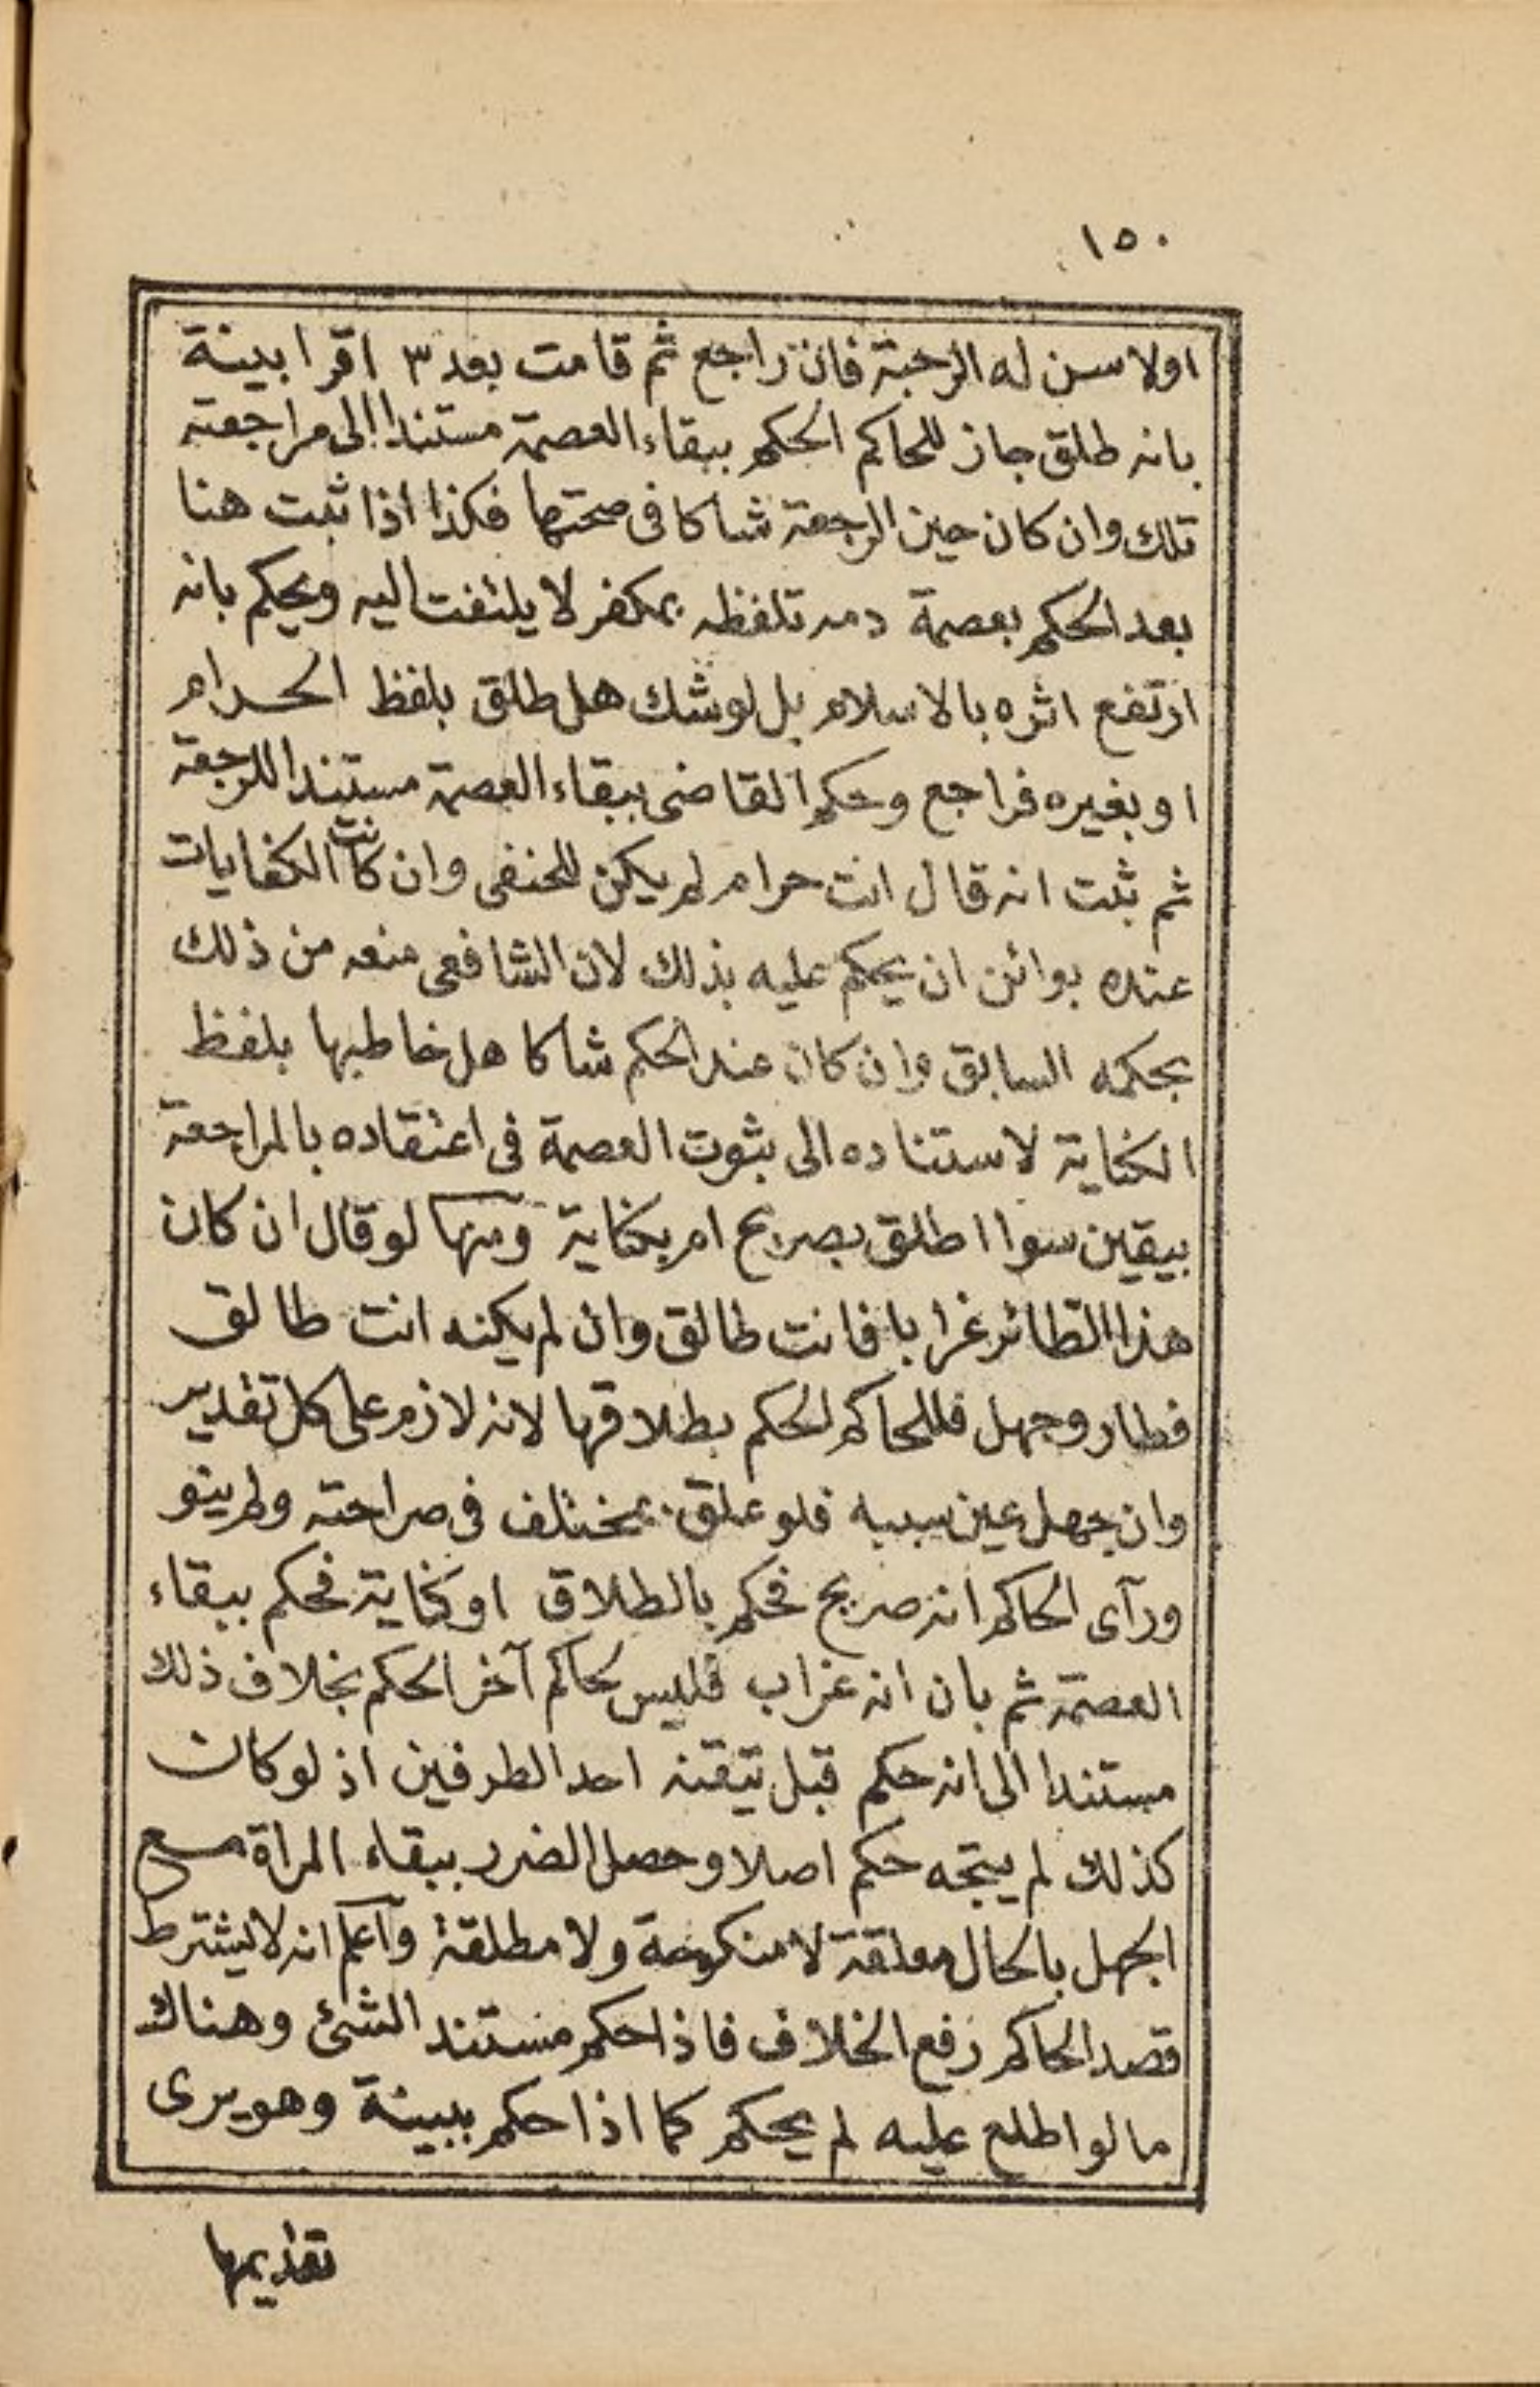 ١٥٠
اولا سن له الرجبة فان راجع ثم قامت بعد ٣ اقرا بينة
بانه طلق جاز للحاكم الحكم ببقاء العصمة مستندا الى مراجعته
تلك وان كان حين الرجعة شاكا فى صحتها فكذا اذا ثبت هنا
بعد الحكم بعصمة دمه تلفظه بمكفر لا يلتفت اليه ويحكم بانه
ارتفع اثره بالاسلام بل لو شك هل طلق بلفظ الحرام
او بغيره فراجع وحكم القاضى ببقاء العصمة مستندا للرجعة
ثم ثبت انه قال انت حرام لم يكن للحنفى وان كانت الكنايات
عنده بوائن ان يحكم عليه بذلك لان الشافعى منعه من ذلك
بحكمه السابق وان كان عند الحكم شاكا هل خاطبها بلفظ
الكناية لاستناده الى ثبوت العصمة فى اعتقاده بالمراجعة
بيقين سوا اطلق بصريح ام بكناية ومنها لو قال ان كان
هذا الطائر غرابا فانت طالق وان لم يكنه انت طالق
فطار وجهل فللحاكم الحكم بطلاقها لانه لازم على كل تقدير
وان جهل عين سببه فلو علق بمختلف فى صراحته ولم ينو
ورآى الحاكم انه صريح فحكم بالطلاق او كناية فحكم ببقاء
العصمة ثم بان انه غراب فليس لحاكم آخر الحكم بخلاف ذلك
مستندا الى انه حكم قبل تيقنه احد الطرفين اذ لو كان
كذلك لم يتجه حكم اصلا وحصل الضرر ببقاء المراة مع
الجهل بالحال معلقة لا منكوحة ولا مطلقة وآعلم انه لا يشترط
قصد الحاكم رفع الخلاف فاذا حكم مستند الشئ وهناك
ما لو اطلع عليه لم يحكم كما اذا حكم ببينة وهو يرى
تقديمها